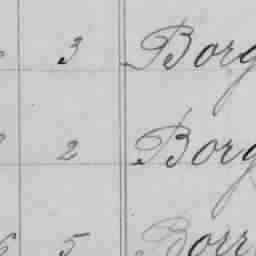 3 Borg
2 Borg
5 Borr